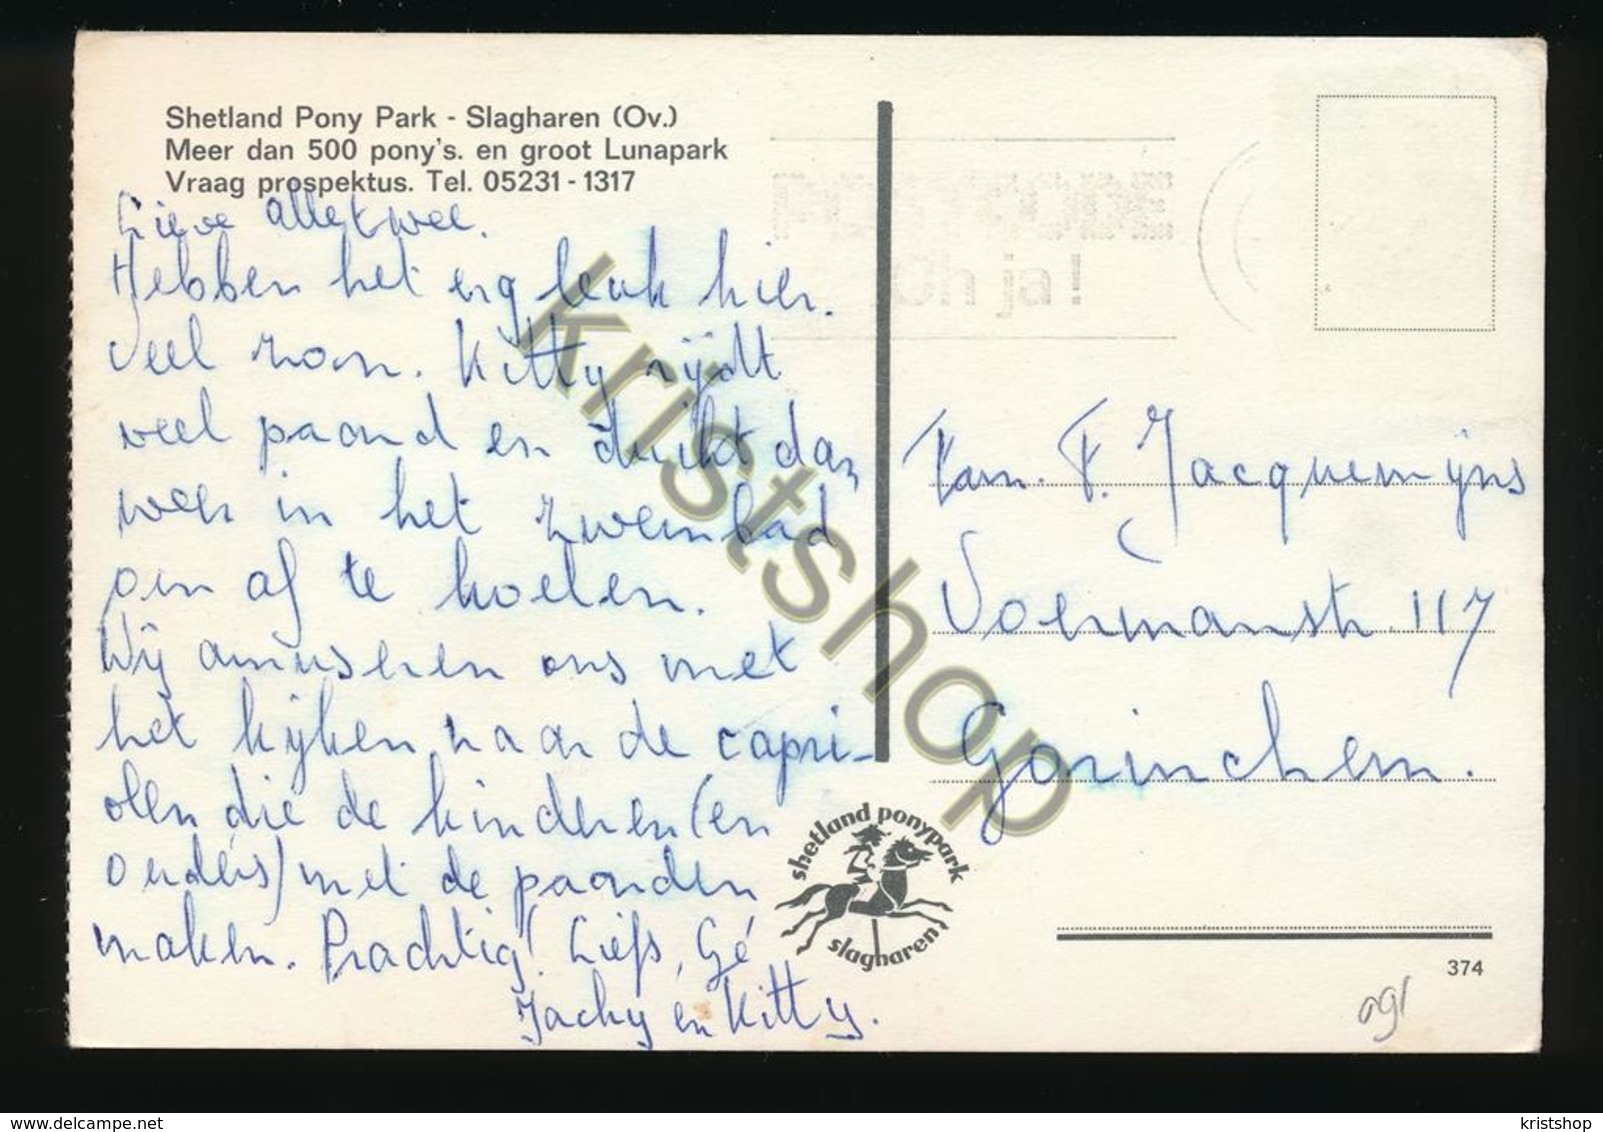 Shetland Pony Park - Slagharen (Ov.)
Meer dan 500 pony's. en groot Lunapark
Vraag prospektus. Tel. 05231-1317
Lieve alletwee.
Hebben het erg leuk hier.
Veel zon. Kitty rijdt
veel paard en duikt dan
weer in het zwembad
om af te koelen.
Wij amuseren ons met
het kijken naar de capri-
olen die de kinderen (en
ouders) met de paarden
maken. Prachtig! Liefs, Gé
Jacky en Kitty.
oh ja!
Fam. F. Jacquemijns
Voermanstr. 117
Gorinchem.
shetland ponypark
slagharen
374
kristshop
www.delcampe.net
kristshop